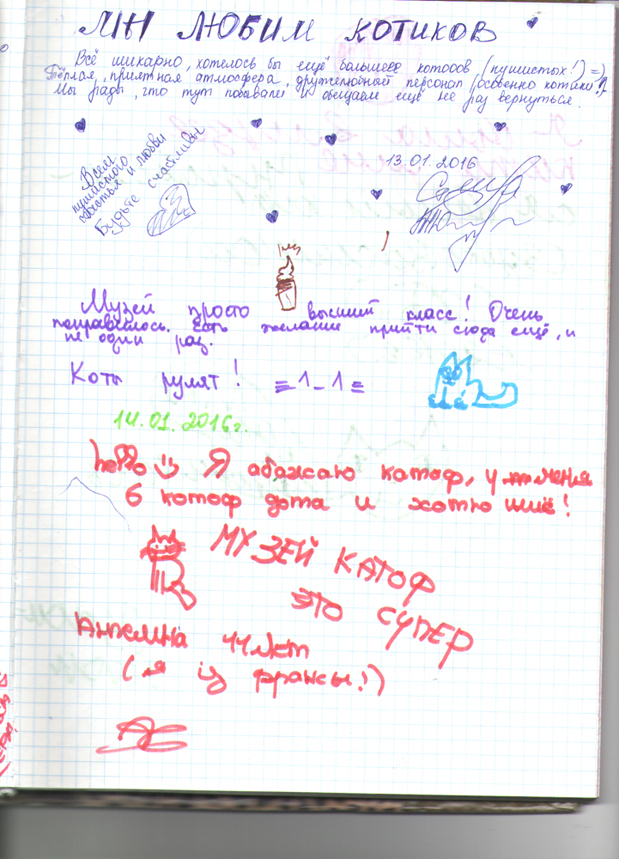 МЫ ЛЮБИМ КОТИКОВ
Всё шикарно, хотелось бы ещё больше котооов (пушистых!) =)
Тёплая, приятная атмосфера, дружелюбный персонал (особенно котики!)
Мы рады, что тут побывали и обещаем ещё не раз вернуться.
13.01.2016
Всем
пушистого
счастья и любви
Будьте счастливы
Музей просто высший класс! Очень
понравилось. Есть желание прийти сюда ещё, и
не один раз.
Коты рулят! =1_1=
14.01.2016г.
hello Я абажаю катоф, у мня
6 котоф дома и хотю ищё!
МУЗЕЙ КАТОФ
ЭТО СУПЕР
Ангелина 11 лет
(я із франсы!)